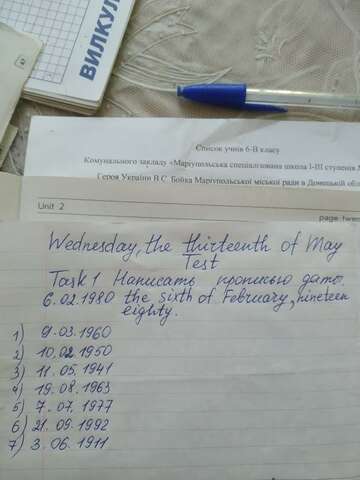 ВИЛКУЛ
Список учнів 6-В класу
Комунального закладу «Маріупольська спеціалізована школа І-ІІІ ступенів
Героя України В.С. Бойка Маріупольської міської ради в Донецькій обл
Unit 2
page
Wednesday, the thirteenth of May
Test
Task 1 Написать прописью даты.
6.02.1980 the sixth of February, nineteen
eighty.
1) 9.03.1960
2) 10.02 1950
3) 11.05.1941
4) 19.08.1963
5) 7.07.1977
6) 21.09.1992
7) 3.06.1911